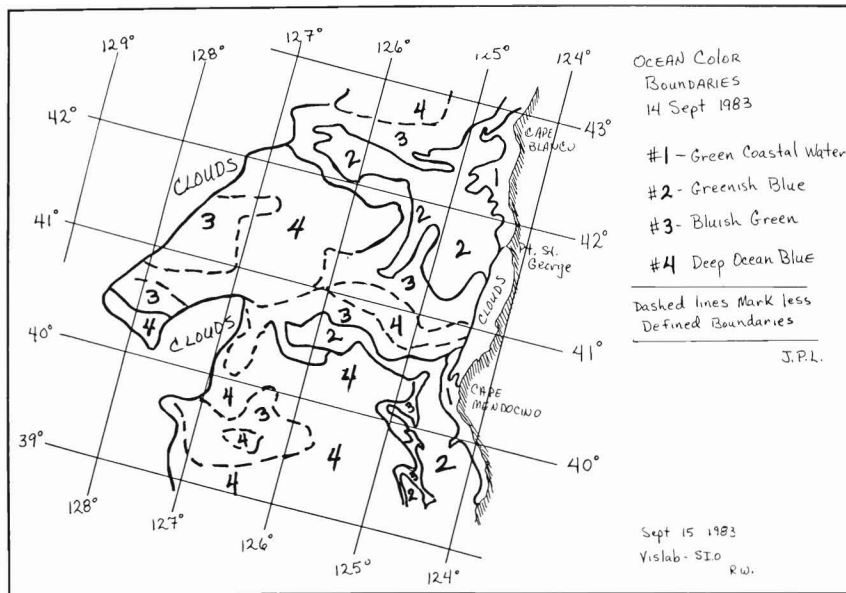 129°
128°
127°
126°
125°
124°
42°
43°
41°
42°
40°
41°
39°
40°
128°
127°
126°
125°
124°
CLOUDS
CLOUDS
CLOUDS
CAPE
BLANCO
Pt. St.
George
CAPE
MENDOCINO
4
3
2
3
4
2
2
3
3
4
3
4
2
4
4
3
4
4
4
3
3
2
2
OCEAN COLOR
BOUNDARIES
14 Sept 1983
#1 - Green Coastal Water
#2 - Greenish Blue
#3 - Bluish Green
#4 Deep Ocean Blue
Dashed lines Mark less
Defined Boundaries
J.P.L.
Sept 15 1983
Vislab - SIO
R.W.